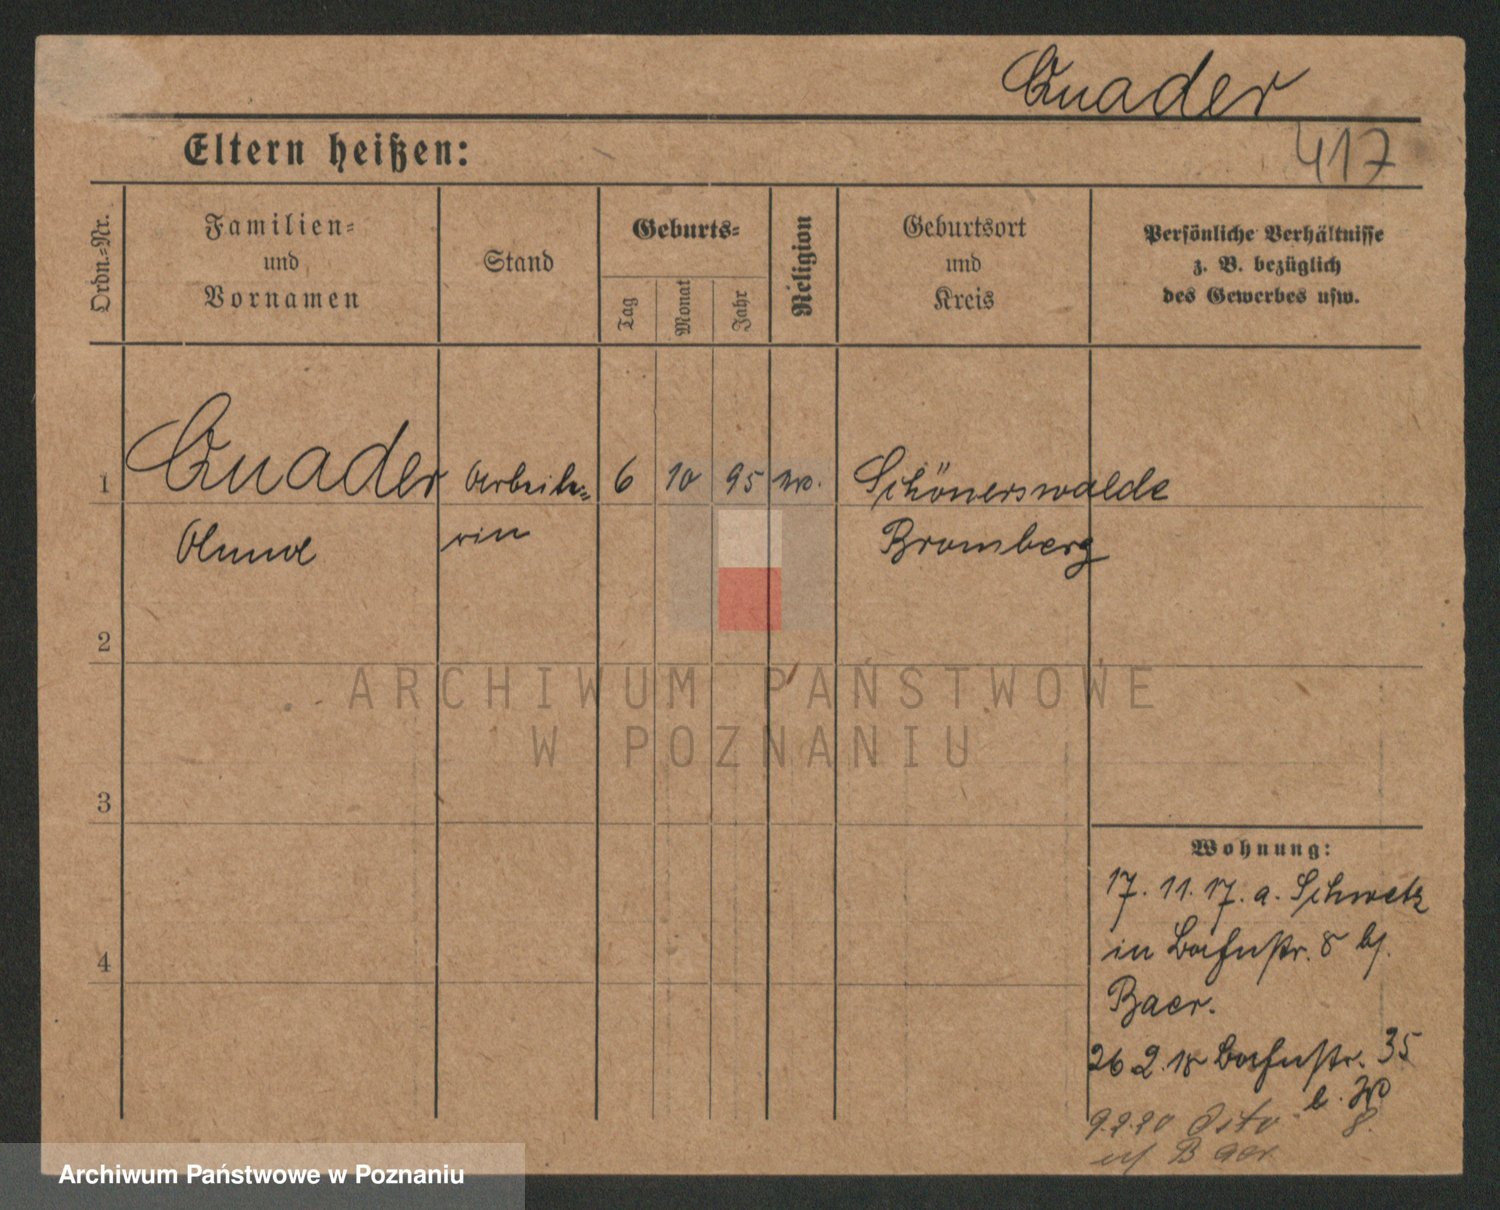 Quader
417
Eltern heißen:
Ordn.=Nr.
Familien=
und
Vornamen
Stand
Geburts=
Tag
Monat
Jahr
Religion
Geburtsort
und
Kreis
Persönliche Verhältnisse
z. B. bezüglich
des Gewerbes usw.
1 Quader Arbeite= 6 10 95 Schönerswalde
rin Bromberg
2
ARCHIWUM PAŃSTWOWE
W POZNANIU
3
Wohnung:
17. 11. 17. a. Schwetz
in Bahnstr. 8 bj.
4
Baer.
26 2. 18 Bahnstr. 35
9.9.20 Dito
Baer
Archiwum Państwowe w Poznaniu